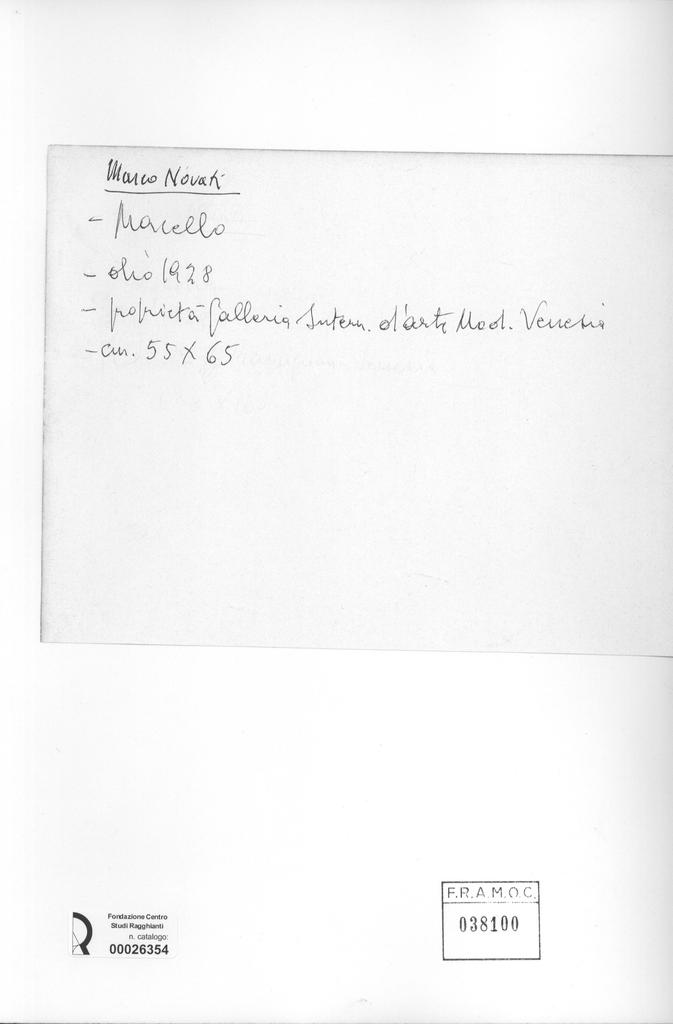 Marco Novati
- Marcello
- olio 1928
- proprietà Galleria Intern. d'arte Mod. Venezia
- cm. 55 X 65
F.R.A.M.O.C.
038100
Fondazione Centro
Studi Ragghianti
n. catalogo:
00026354